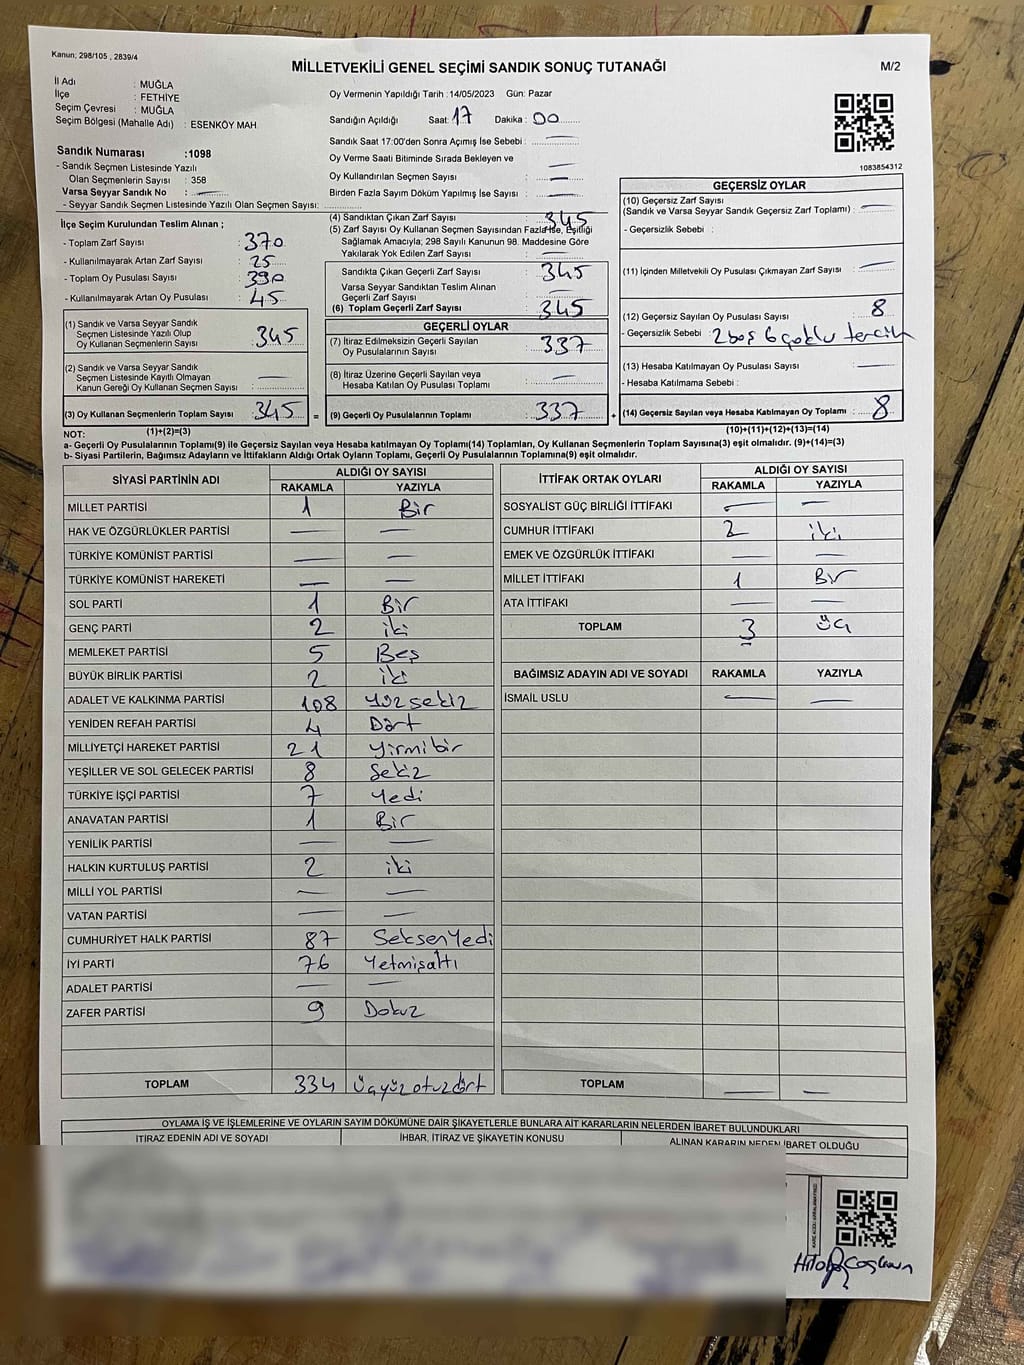 Kanun; 298/105 , 2839/4
MİLLETVEKİLİ GENEL SEÇİMİ SANDIK SONUÇ TUTANAĞI
M/2
İl Adı : MUĞLA
İlçe : FETHİYE
Seçim Çevresi : MUĞLA
Seçim Bölgesi (Mahalle Adı) : ESENKÖY MAH.
Sandık Numarası :1098
- Sandık Seçmen Listesinde Yazılı
Olan Seçmenlerin Sayısı : 358
Varsa Seyyar Sandık No : —
- Seyyar Sandık Seçmen Listesinde Yazılı Olan Seçmen Sayısı:
Oy Vermenin Yapıldığı Tarih :14/05/2023 Gün: Pazar
Sandığın Açıldığı Saat: 17 Dakika : 00
Sandık Saat 17:00'den Sonra Açımış İse Sebebi : —
Oy Verme Saati Bitiminde Sırada Bekleyen ve
Oy Kullandırılan Seçmen Sayısı : —
Birden Fazla Sayım Döküm Yapılmış İse Sayısı : —
1083854312
İlçe Seçim Kurulundan Teslim Alınan ;
- Toplam Zarf Sayısı : 370
- Kullanılmayarak Artan Zarf Sayısı : 25
- Toplam Oy Pusulası Sayısı : 390
- Kullanılmayarak Artan Oy Pusulası : 45
(1) Sandık ve Varsa Seyyar Sandık
Seçmen Listesinde Yazılı Olup
Oy Kullanan Seçmenlerin Sayısı : 345
(2) Sandık ve Varsa Seyyar Sandık
Seçmen Listesinde Kayıtlı Olmayan
Kanun Gereği Oy Kullanan Seçmen Sayısı : —
(3) Oy Kullanan Seçmenlerin Toplam Sayısı : 345 =
(1)+(2)=(3)
(4) Sandıktan Çıkan Zarf Sayısı : 345
(5) Zarf Sayısı Oy Kullanan Seçmen Sayısından Fazla İse, Eşitliği
Sağlamak Amacıyla; 298 Sayılı Kanunun 98. Maddesine Göre
Yakılarak Yok Edilen Zarf Sayısı : —
Sandıkta Çıkan Geçerli Zarf Sayısı : 345
Varsa Seyyar Sandıktan Teslim Alınan
Geçerli Zarf Sayısı : —
(6) Toplam Geçerli Zarf Sayısı : 345
GEÇERLİ OYLAR
(7) İtiraz Edilmeksizin Geçerli Sayılan
Oy Pusulalarının Sayısı : 337
(8) İtiraz Üzerine Geçerli Sayılan veya
Hesaba Katılan Oy Pusulası Toplamı : —
(9) Geçerli Oy Pusulalarının Toplamı : 337 +
GEÇERSİZ OYLAR
(10) Geçersiz Zarf Sayısı
(Sandık ve Varsa Seyyar Sandık Geçersiz Zarf Toplamı) : —
- Geçersizlik Sebebi :
(11) İçinden Milletvekili Oy Pusulası Çıkmayan Zarf Sayısı : —
(12) Geçersiz Sayılan Oy Pusulası Sayısı : 8
- Geçersizlik Sebebi : 2 boş 6 çoklu tercih
(13) Hesaba Katılmayan Oy Pusulası Sayısı : —
- Hesaba Katılmama Sebebi :
(14) Geçersiz Sayılan veya Hesaba Katılmayan Oy Toplamı : 8
(10)+(11)+(12)+(13)=(14)
NOT:
a- Geçerli Oy Pusulalarının Toplamı(9) ile Geçersiz Sayılan veya Hesaba katılmayan Oy Toplamı(14) Toplamları, Oy Kullanan Seçmenlerin Toplam Sayısına(3) eşit olmalıdır. (9)+(14)=(3)
b- Siyasi Partilerin, Bağımsız Adayların ve İttifakların Aldığı Ortak Oyların Toplamı, Geçerli Oy Pusulalarının Toplamına(9) eşit olmalıdır.
SİYASİ PARTİNİN ADI ALDIĞI OY SAYISI
RAKAMLA YAZIYLA
MİLLET PARTİSİ 1 Bir
HAK VE ÖZGÜRLÜKLER PARTİSİ — —
TÜRKİYE KOMÜNİST PARTİSİ — —
TÜRKİYE KOMÜNİST HAREKETİ — —
SOL PARTİ 1 Bir
GENÇ PARTİ 2 iki
MEMLEKET PARTİSİ 5 Beş
BÜYÜK BİRLİK PARTİSİ 2 iki
ADALET VE KALKINMA PARTİSİ 108 Yüzsekiz
YENİDEN REFAH PARTİSİ 4 Dört
MİLLİYETÇİ HAREKET PARTİSİ 21 Yirmibir
YEŞİLLER VE SOL GELECEK PARTİSİ 8 Sekiz
TÜRKİYE İŞÇİ PARTİSİ 7 Yedi
ANAVATAN PARTİSİ 1 Bir
YENİLİK PARTİSİ — —
HALKIN KURTULUŞ PARTİSİ 2 iki
MİLLİ YOL PARTİSİ — —
VATAN PARTİSİ — —
CUMHURİYET HALK PARTİSİ 87 SeksenYedi
İYİ PARTİ 76 Yetmişaltı
ADALET PARTİSİ — —
ZAFER PARTİSİ 9 Dokuz
TOPLAM 334 Üçyüzotuzdört
İTTİFAK ORTAK OYLARI ALDIĞI OY SAYISI
RAKAMLA YAZIYLA
SOSYALİST GÜÇ BİRLİĞİ İTTİFAKI — —
CUMHUR İTTİFAKI 2 iki
EMEK VE ÖZGÜRLÜK İTTİFAKI — —
MİLLET İTTİFAKI 1 Bir
ATA İTTİFAKI — —
TOPLAM 3 Üç
BAĞIMSIZ ADAYIN ADI VE SOYADI RAKAMLA YAZIYLA
İSMAİL USLU — —
TOPLAM — —
OYLAMA İŞ VE İŞLEMLERİNE VE OYLARIN SAYIM DÖKÜMÜNE DAİR ŞİKAYETLERLE BUNLARA AİT KARARLARIN NELERDEN İBARET BULUNDUKLARI
İTİRAZ EDENİN ADI VE SOYADI İHBAR, İTİRAZ VE ŞİKAYETİN KONUSU ALINAN KARARIN NEDEN İBARET OLDUĞU